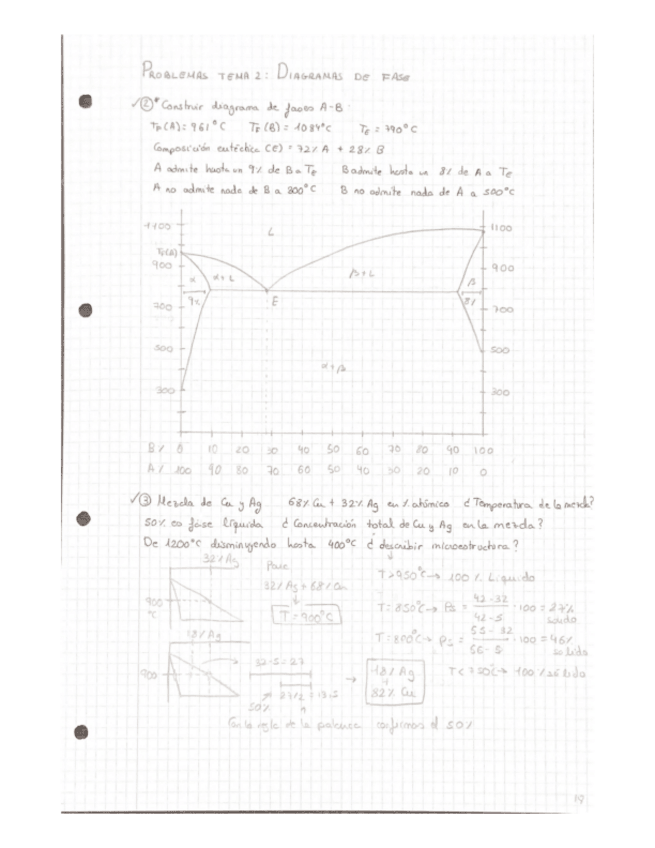 PROBLEMAS TEMA 2: DIAGRAMAS DE FASE
✓② * Construir diagrama de fases A-B:
TF(A)= 961°C TF(B)= 1084°C TE = 790°C
Composición eutéctica (E) = 72% A + 28% B
A admite hasta un 9% de B a TE B admite hasta un 8% de A a TE
A no admite nada de B a 300°C B no admite nada de A a 500°C
1100 L 1100
TF(A)
900 α α+L β+L β 900
9% E 8%
700 700
500 α+β 500
300 300
B% 0 10 20 30 40 50 60 70 80 90 100
A% 100 90 80 70 60 50 40 30 20 10 0
✓③ Mezcla de Cu y Ag 68% Cu + 32% Ag en % atómico ¿Temperatura de la mezcla?
50% en fase líquida ¿Concentración total de Cu y Ag en la mezcla?
De 1200°C disminuyendo hasta 400°C ¿describir microestructura?
32% Ag
Para
32% Ag + 68% Cu
900
°C
T = 900°C
T>950°C → 100% Líquido
T: 850°C → Ps = 42-32 / 42-5 · 100 = 27% sólido
T: 800°C → Ps = 55-32 / 56-5 · 100 = 46% sólido
T< 750°C → 100% sólido
18% Ag
900
32-5=27
27/2 = 13,5
50%
18% Ag
+
82% Cu
Con la regla de la palanca confirmamos el 50%